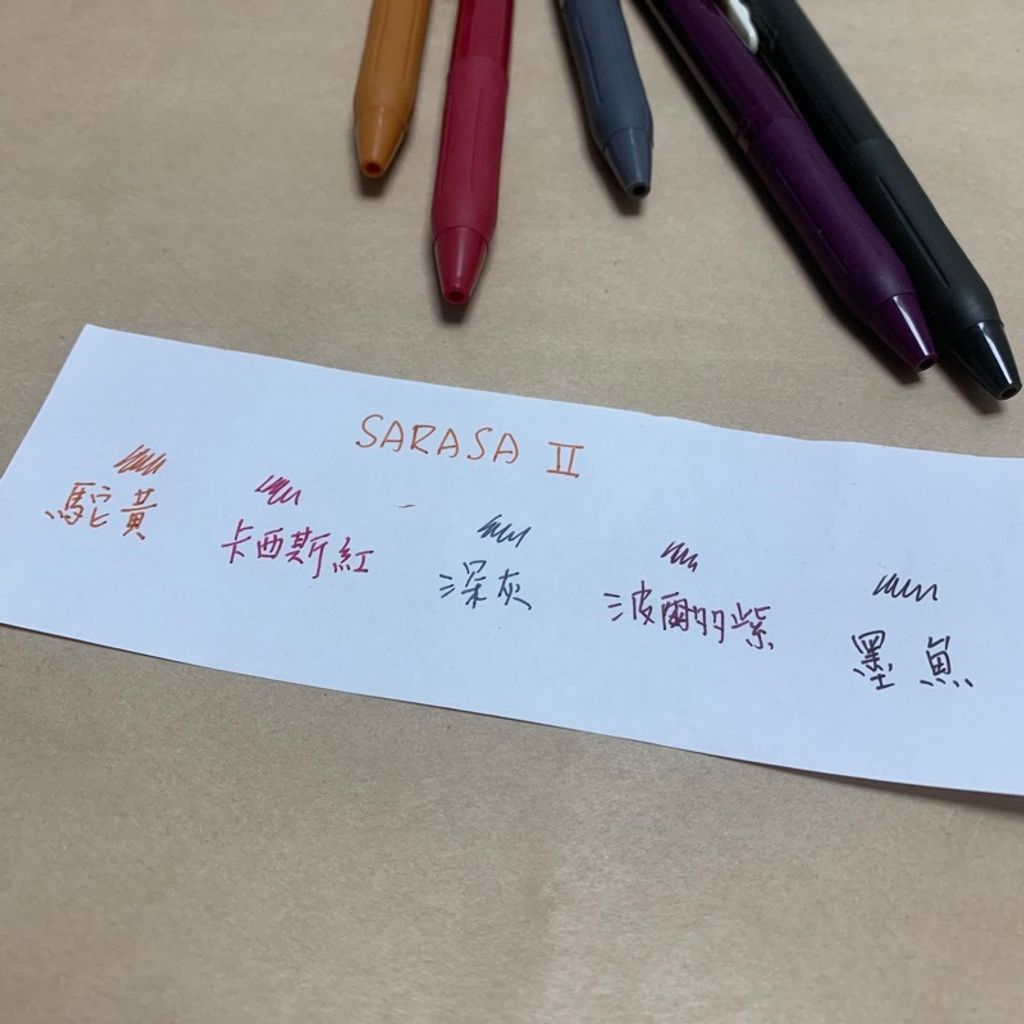 SARASA II
駝黃
卡西斯紅
深灰
波爾多紫
墨魚